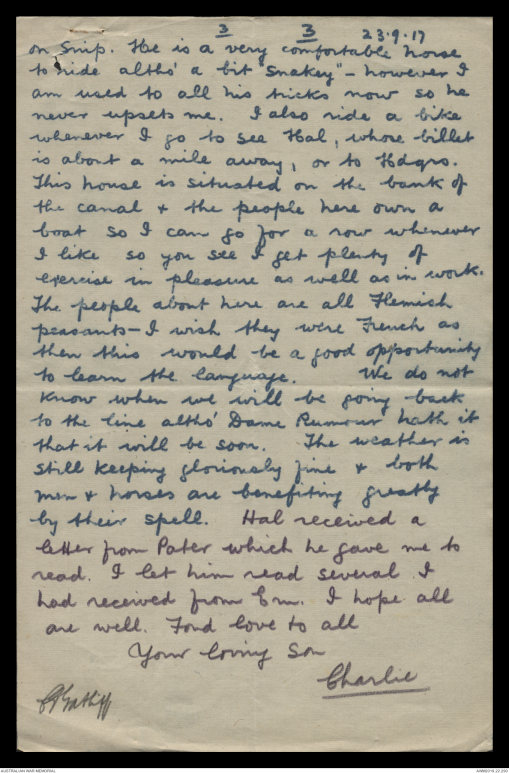 3 3 23.9.17
on Snip. He is a very comfortable horse
to ride altho' a bit "snakey" - however I
am used to all his tricks now so he
never upsets me. I also ride a bike
whenever I go to see Hal, whose billet
is about a mile away, or to Hdqrs.
This house is situated on the bank of
the canal + the people here own a
boat so I can go for a row whenever
I like so you see I get plenty of
exercise in pleasure as well as in work.
The people about here are all Flemish
peasants - I wish they were French as
then this would be a good opportunity
to learn the language. We do not
know when we will be going back
to the line altho' Dame Rumour hath it
that it will be soon. The weather is
still keeping gloriously fine + both
men + horses are benefiting greatly
by their spell. Hal received a
letter from Pater which he gave me to
read. I let him read several I
had received from Em. I hope all
are well. Fond love to all
Your loving Son
Charlie
AUSTRALIAN WAR MEMORIAL